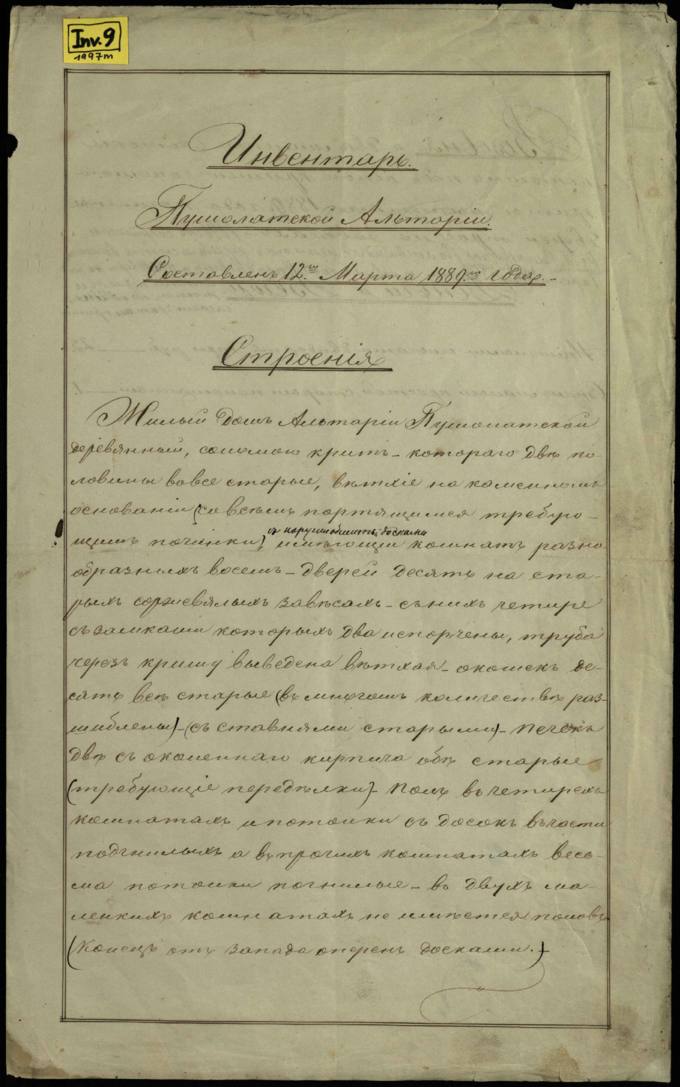 Inv. 9
1997m
Инвентарь.
Пушолатской Альтаріи.
Составленъ 12го Марта 1889го года.
Строенія
Жилый домъ Альтаріи Пушолатской
деревянный, соломою крытъ – котораго двѣ по-
ловины вовсе старые, вѣтхіе на каменномъ
основаніи (со всѣмъ портящимся требую-
и наружность досками
щимъ починки) имѣющій комнатъ разно
образныхъ восемъ – дверей десять на ста-
рыхъ соржевялыхъ завѣсахъ – съ нихъ четире
съ замками которыхъ два испорчены, труба
черезъ кришу выведена вѣтхая – окошекъ де-
сять всѣ старые (въ многомъ количествѣ раз-
шиблены) – (съ ставнями старыми) – Печекъ
двѣ съ окаленнаго кирпича обѣ старые
(требующіе передѣлки) – Полъ въ четирехъ
комнатахъ и потолки съ досокъ въ части
подгнилыхъ а въ прочихъ комнатахъ весь-
ма потолки погнилые – въ двухъ ма-
ленкихъ комнатахъ не имѣется половъ
(Конецъ отъ запада оперенъ досками.)